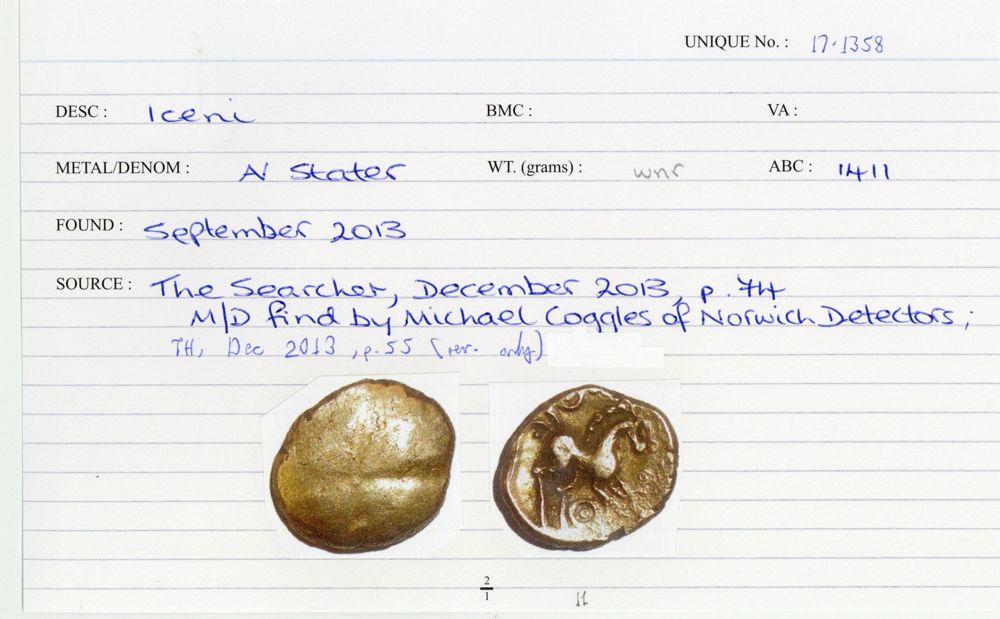 UNIQUE No. : 17.1358
DESC : Iceni BMC : VA :
METAL/DENOM : A/ Stater WT. (grams) : wnr ABC : 1411
FOUND : September 2013
SOURCE : The Searcher, December 2013, p. 74
M/D find by Michael Coggles of Norwich Detectors ;
TH, Dec 2013, p. 55 (rev. only)
2
1